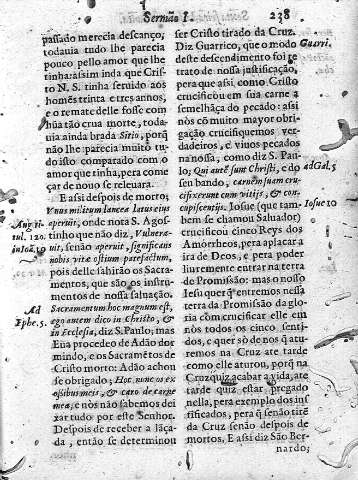 Sermão I. 238
passado merecia descanço,
todauia tudo lhe parecia
pouco pello amor que lhe
tinha: assim inda que Cris-
to N. S. tinha seruido aos
homẽs trinta e tres annos,
e o remate delle fosse com
hũa tão crua morte, toda-
uia ainda brada Sitio, porq̃
não lhe parecia muito tu-
do isto comparado com o
amor que tinha, pera come
çar de nouo se releuara.
E assi despois de morto;
Vnus militum lancea latus eius
aperuit, onde nota S. Agos-
tinho que não diz, Vulnera-
uit, senão aperuit, significans
nobis vitæ ostium patefactum,
depois delle sahirão os Sacra-
mentos, que são os instru-
mentos de nossa saluação.
Sacramentum hoc magnum est,
ego autem dico in Christo, &
in Ecclesia, diz S. Paulo; mas
Eua procedeo de Adão dor-
mindo, e os Sacramẽtos de
Cristo morto: Adão achou
se obrigado; Hoc nunc os ex
ossibus meis, & caro de carne
mea, e nòs não sabemos dei
xar tudo por este Senhor.
Despois de receber a lãça-
da, então se determinou
Aug. tri-
tul. 120.
in Ioã. 19
Ad
Ephe. 5.
ser Cristo tirado da Cruz.
Diz Guarrico, que o modo
deste descendimento foi re
trato de nossa justificação,
pera que assi, como Cristo
crucificou em sua carne a
semelhãça do pecado: assi
nòs cõ muito mayor obri-
gação crucifiquemos ver-
dadeiros, e viuos pecados
na nossa, como diz S. Pau-
lo; Qui autẽ sunt Christi, e do
seu bando, carnem suam cru-
cifixerunt cum vitijs, & con-
cupiscentijs. Iosue (que tam
bem se chamou Saluador)
crucificou cinco Reys dos
Amorrheos, pera aplacar a
ira de Deos, e pera poder
liuremente entrar na terra
de Promissão: mas o nosso
Iesu quer q̃ entremos nessa
terra da Promissão da glo-
ria com crucificar elle em
nòs todos os cinco senti-
dos, e quer sò de nos q̃ a-
turemos na Cruz ate tarde
como elle aturou, porq̃ na
Cruz quiz acabar a vida, ate
tarde quiz estar pregado
nella, pera exemplo dos ius
tificados, pera q̃ senão tirẽ
da Cruz senão despois de
mortos. E assi diz São Ber-
nardo;
Guarri.
ad Gal. 5
Iosue 10